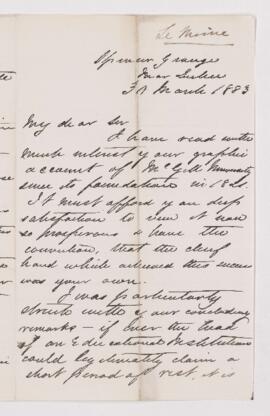 Le Moine
Spencer Grange
Near Quebec
31 March 1883
My dear Sir
I have read with
much interest your graphic
account of McGill University
since its foundation in 1821.
It must afford you deep
satisfaction to view it now
so prosperous & have the
conviction, that the chief
hand which achieved this success
was your own.
I was particularly
struck with your concluding
remarks - if ever the head
of an Educational Institution
could legitimately claim a
short period of rest, it is